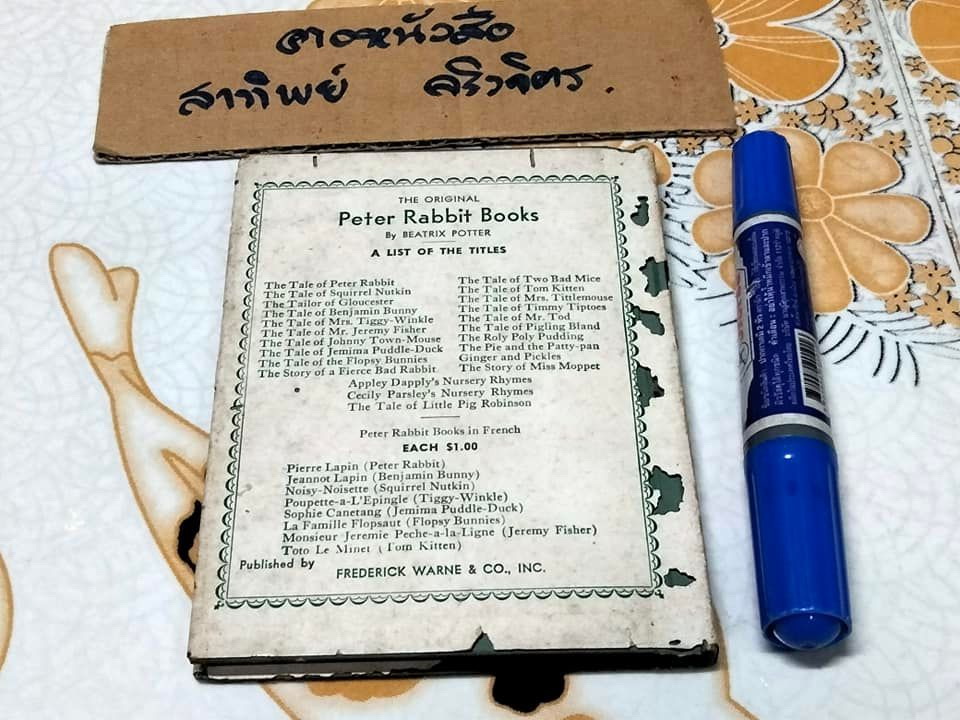 สาทิพย์
THE ORIGINAL
Peter Rabbit Books
By BEATRIX POTTER
A LIST OF THE TITLES
The Tale of Peter Rabbit
The Tale of Squirrel Nutkin
The Tailor of Gloucester
The Tale of Benjamin Bunny
The Tale of Mrs. Tiggy-Winkle
The Tale of Mr. Jeremy Fisher
The Tale of Johnny Town-Mouse
The Tale of Jemima Puddle-Duck
The Tale of the Flopsy Bunnies
The Story of a Fierce Bad Rabbit
The Tale of Two Bad Mice
The Tale of Tom Kitten
The Tale of Mrs. Tittlemouse
The Tale of Timmy Tiptoes
The Tale of Mr. Tod
The Tale of Pigling Bland
The Roly Poly Pudding
The Pie and the Patty-pan
Ginger and Pickles
The Story of Miss Moppet
Appley Dapply's Nursery Rhymes
Cecily Parsley's Nursery Rhymes
The Tale of Little Pig Robinson
Peter Rabbit Books in French
EACH $1.00
Pierre Lapin (Peter Rabbit)
Jeannot Lapin (Benjamin Bunny)
Noisy-Noisette (Squirrel Nutkin)
Poupette-a-L'Epingle (Tiggy-Winkle)
Sophie Canetang (Jemima Puddle-Duck)
La Famille Flopsaut (Flopsy Bunnies)
Monsieur Jeremie Peche-a-la-Ligne (Jeremy Fisher)
Toto Le Minet (Tom Kitten)
Published by
FREDERICK WARNE & CO., INC.